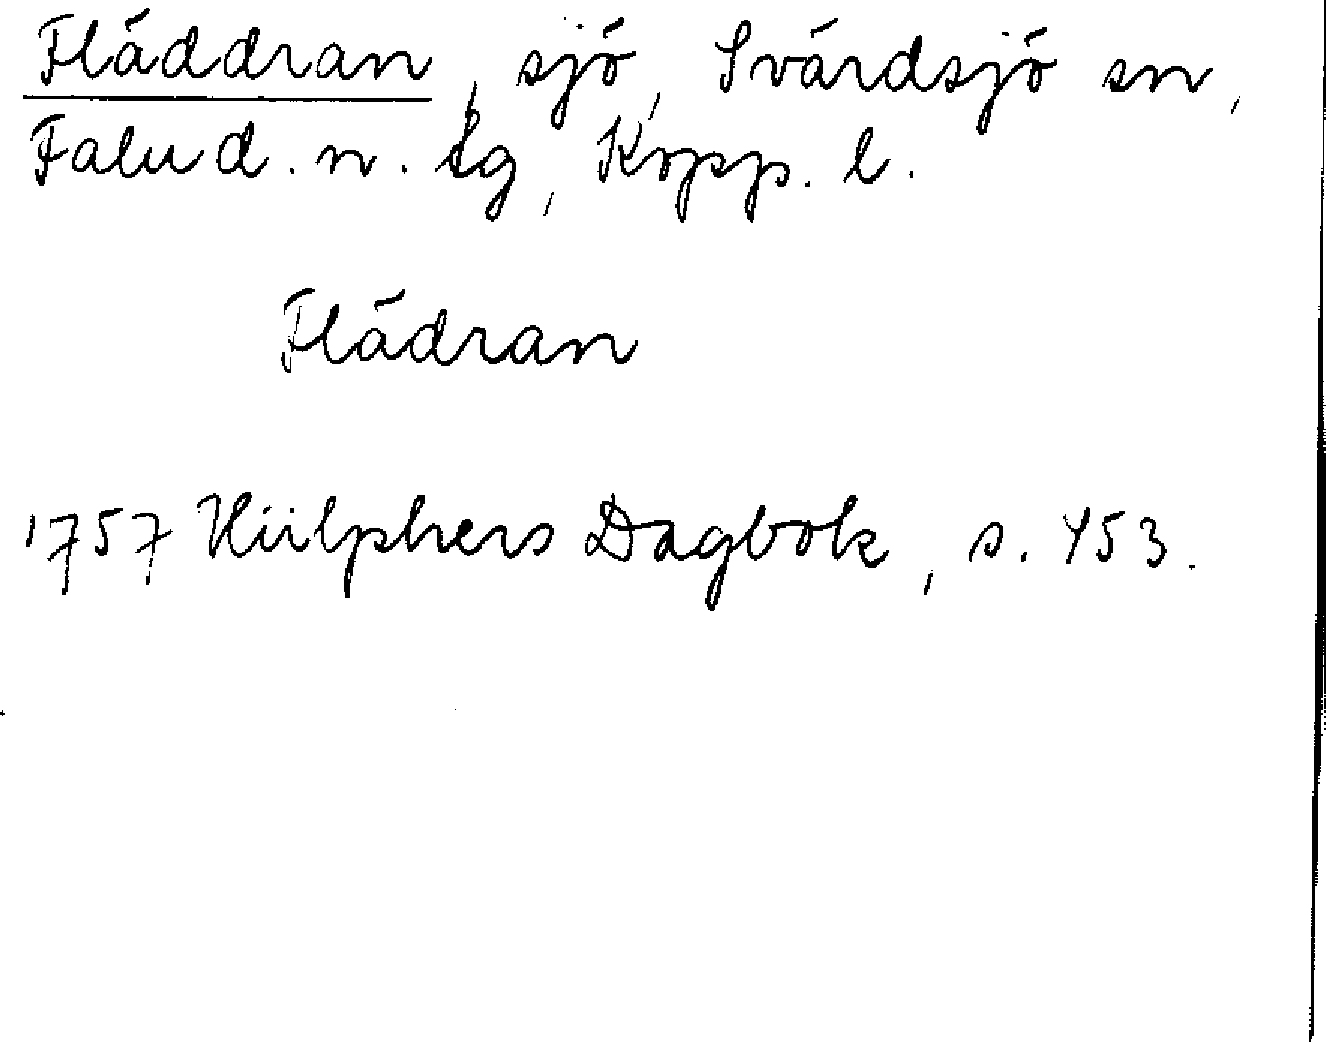 Fläddran, sjö, Svärdsjö sn,
Falu d. n. tg, Kopp. l.
Flädran
1757 Hülphers Dagbok, s. 453.